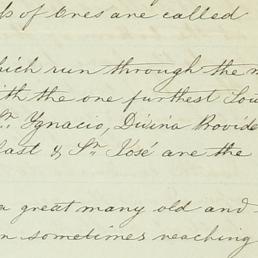 of Ores are called
which run through the
with the one furthest Sou
Sn. Ygnacio, Divina Provide
last & Sn. José are the
a great many old and
sometimes reaching